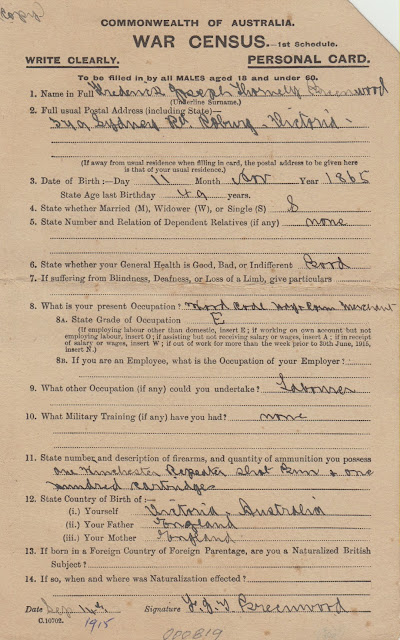 Copy
COMMONWEALTH OF AUSTRALIA.
WAR CENSUS.—1st Schedule.
WRITE CLEARLY. PERSONAL CARD.
To be filled in by all MALES aged 18 and under 60.
1. Name in Full Frederick Joseph Thornely Greenwood
(Underline Surname.)
2. Full usual Postal Address (including State)—
Sydney Rd. Coburg - Victoria -
(If away from usual residence when filling in card, the postal address to be given here
is that of your usual residence.)
3. Date of Birth:—Day 11 Month Nov Year 1865
State Age last Birthday 49 years.
4. State whether Married (M), Widower (W), or Single (S) S
5. State Number and Relation of Dependent Relatives (if any) none
6. State whether your General Health is Good, Bad, or Indifferent Good
7. If suffering from Blindness, Deafness, or Loss of a Limb, give particulars
8. What is your present Occupation? Wood Coal Merchant
8A. State Grade of Occupation E
(If employing labour other than domestic, insert E; if working on own account but not
employing labour, insert O; if assisting but not receiving salary or wages, insert A; if in receipt
of salary or wages, insert W; if out of work for more than the week prior to 30th June, 1915,
insert N.)
8B. If you are an Employee, what is the Occupation of your Employer?
9. What other Occupation (if any) could you undertake? Labourer
10. What Military Training (if any) have you had? none
11. State number and description of firearms, and quantity of ammunition you possess
one Winchester Repeater Shot Gun & one
hundred Cartridges
12. State Country of Birth of:—
(i.) Yourself Victoria - Australia
(ii.) Your Father England
(iii.) Your Mother England
13. If born in a Foreign Country of Foreign Parentage, are you a Naturalized British
Subject?
14. If so, when and where was Naturalization effected?
Date Sep 14th Signature F. J. T. Greenwood
C.10702. 1915
000819